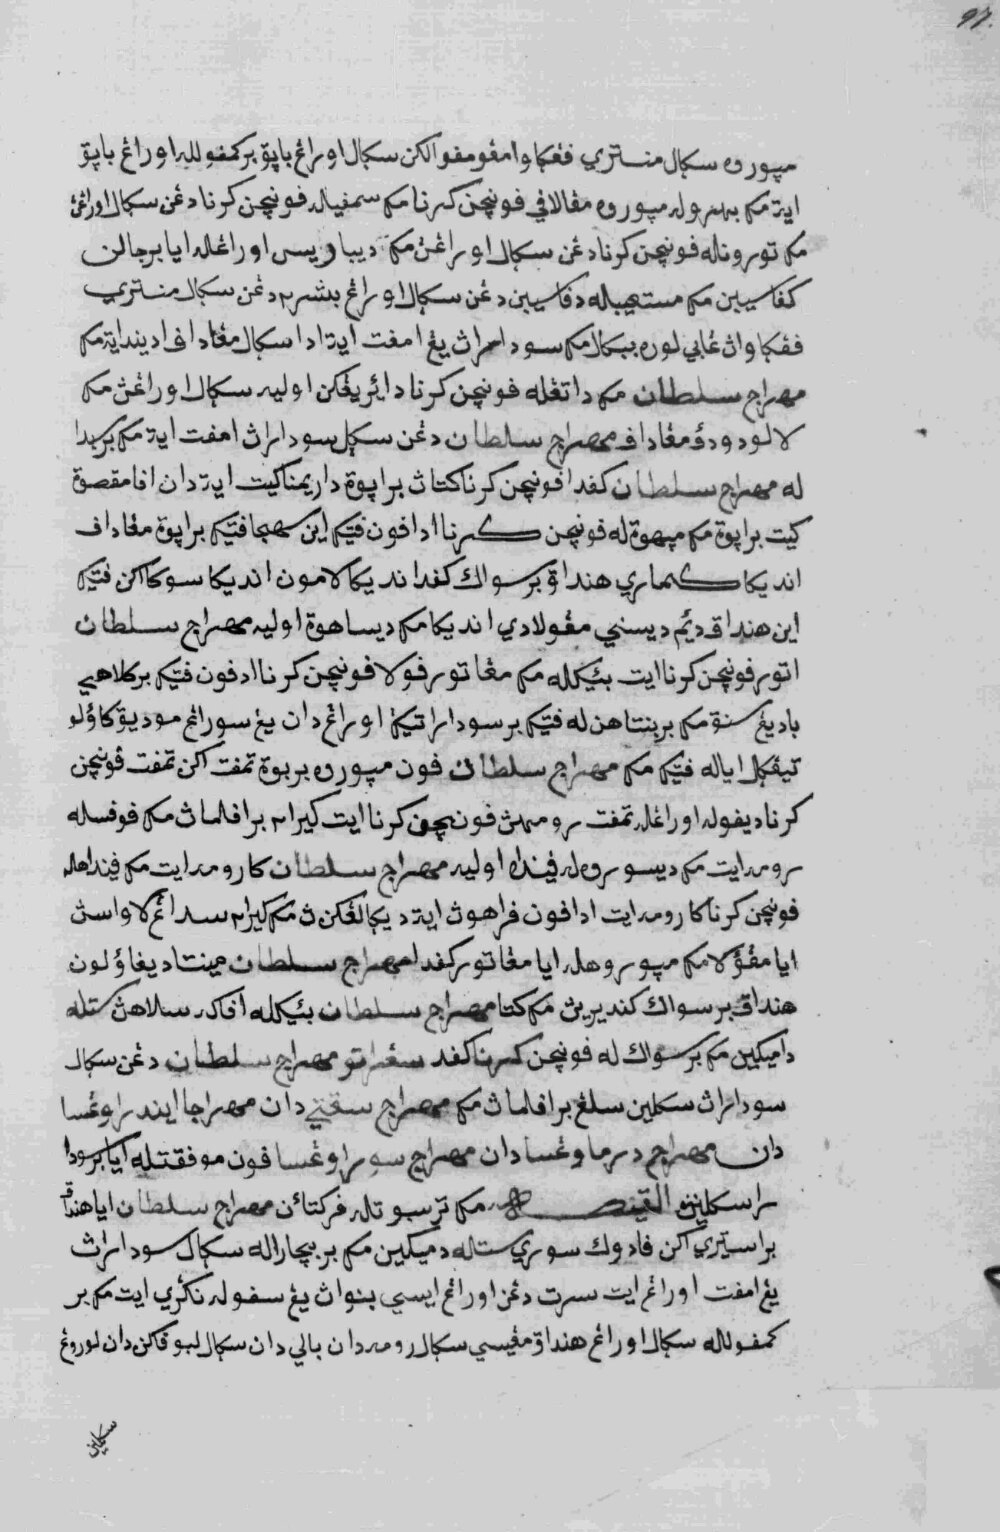 مپوره سکال منتري ففکاوا مڠومفولکن سکال اورڠ باپق برکمفوله اورڠ باپق
ايت مک بهروله مپوره مڠالافي فونچن کرنا مک سمفيله فونچن کرنا دڠن سکال اورڠڽ
مک تورونله فونچن کرنا دڠن سکال اورڠڽ مک ديباوريس اورڠله ايا برجالن
کفاسيبن مک مستعيباله دفاسيبن دڠن سکال اورڠ بشر٢ دڠن سکال منتري
ففکاوا لوره بکال مک سودارڽ يڠ امفت ايت ادا سکال مڠادف اديندايت مک
مهراج سلطان مک داتڠله فونچن کرنا دايريڠکن اوليه سکال اورڠڽ مک
لالو دودق مڠادف مهراج سلطان دڠن سکل سودارڽ امفت ايت مک برسبدا
له مهراج سلطان کفدا فونچن کرنا کتاڽ براپوة داريمنا کيت ايت دان افا مقصوة
کيت براپوة مک مپهوة له فونچن کرنا ادافون فتيک اين سهجا فتيک براپوة مڠادف
انديکا کماري هنداق برسواك کفد انديکا لامون انديکا سوکاکن فتيک
اين هنداق ديم ديسني مڠولادي انديکا مک ديساهوة اوليه مهراج سلطان
اتور فونچن کرنا ايت بئيکله مک مڠاتور فولا فونچن کرنا ادفون فتيک برکلاهي
باديڠ سنة مک بربنتاهن له فتيک برسودارا تيک اورڠ دان يڠ سورڠ موديق کاولو
تيڠکل اياله فتيک مک مهراج سلطان فون مپوره بربوة تمفت اکن تمفت فونچن
کرنا ديفوله اورڠله تمفت رومهڽ فونچن کرنا ايت کيرا٢ برافلماڽ مک فوفسله
رومه ايت مک ديسورهله فينداه اوليه مهراج سلطان کارومه ايت مک فينداهله
فونچن کرنا کارومه ايت ادافون فراهوڽ ايت ديکالڠکنڽ مک کيرا٢ سداڠ لاواسڽ
ايا مڠڬولا مک مپوروهله ايا مڠاتور کفدا مهراج سلطان مينتا ديڠاولون
هنداق برسواك کنديريڽ مک کتا مهراج سلطان بئيکله افاکه سلاهڽ ستله
دميکين مک برسواك له فونچن کرنا کفد سڠراتو مهراج سلطان دڠن سکال
سودارڽ سکلين سلڠ برافلماڽ مک مهراج سقتي دان مهراجا ايندراوڠسا
دان مهراج درماوڠسا دان مهراج سوراوڠسا فون موفقتله ايا برسودا
را سکلين القصه مک ترسبوتله فرکتائن مهراج سلطان ايا هندق
براستري اکن فادوك سوري ستله دميکين مک بربچاراله سکال سودارڽ
يڠ امفت اورڠ ايت سرت دڠن اورڠ ايسي بنواڽ يڠ سفوله نکري ايت مک بر
کمفولله سکال اورڠ هنداق مڠيسي سکال رومه دان بالي دان سکال لبوفکن دان لوروڠ
سکلين